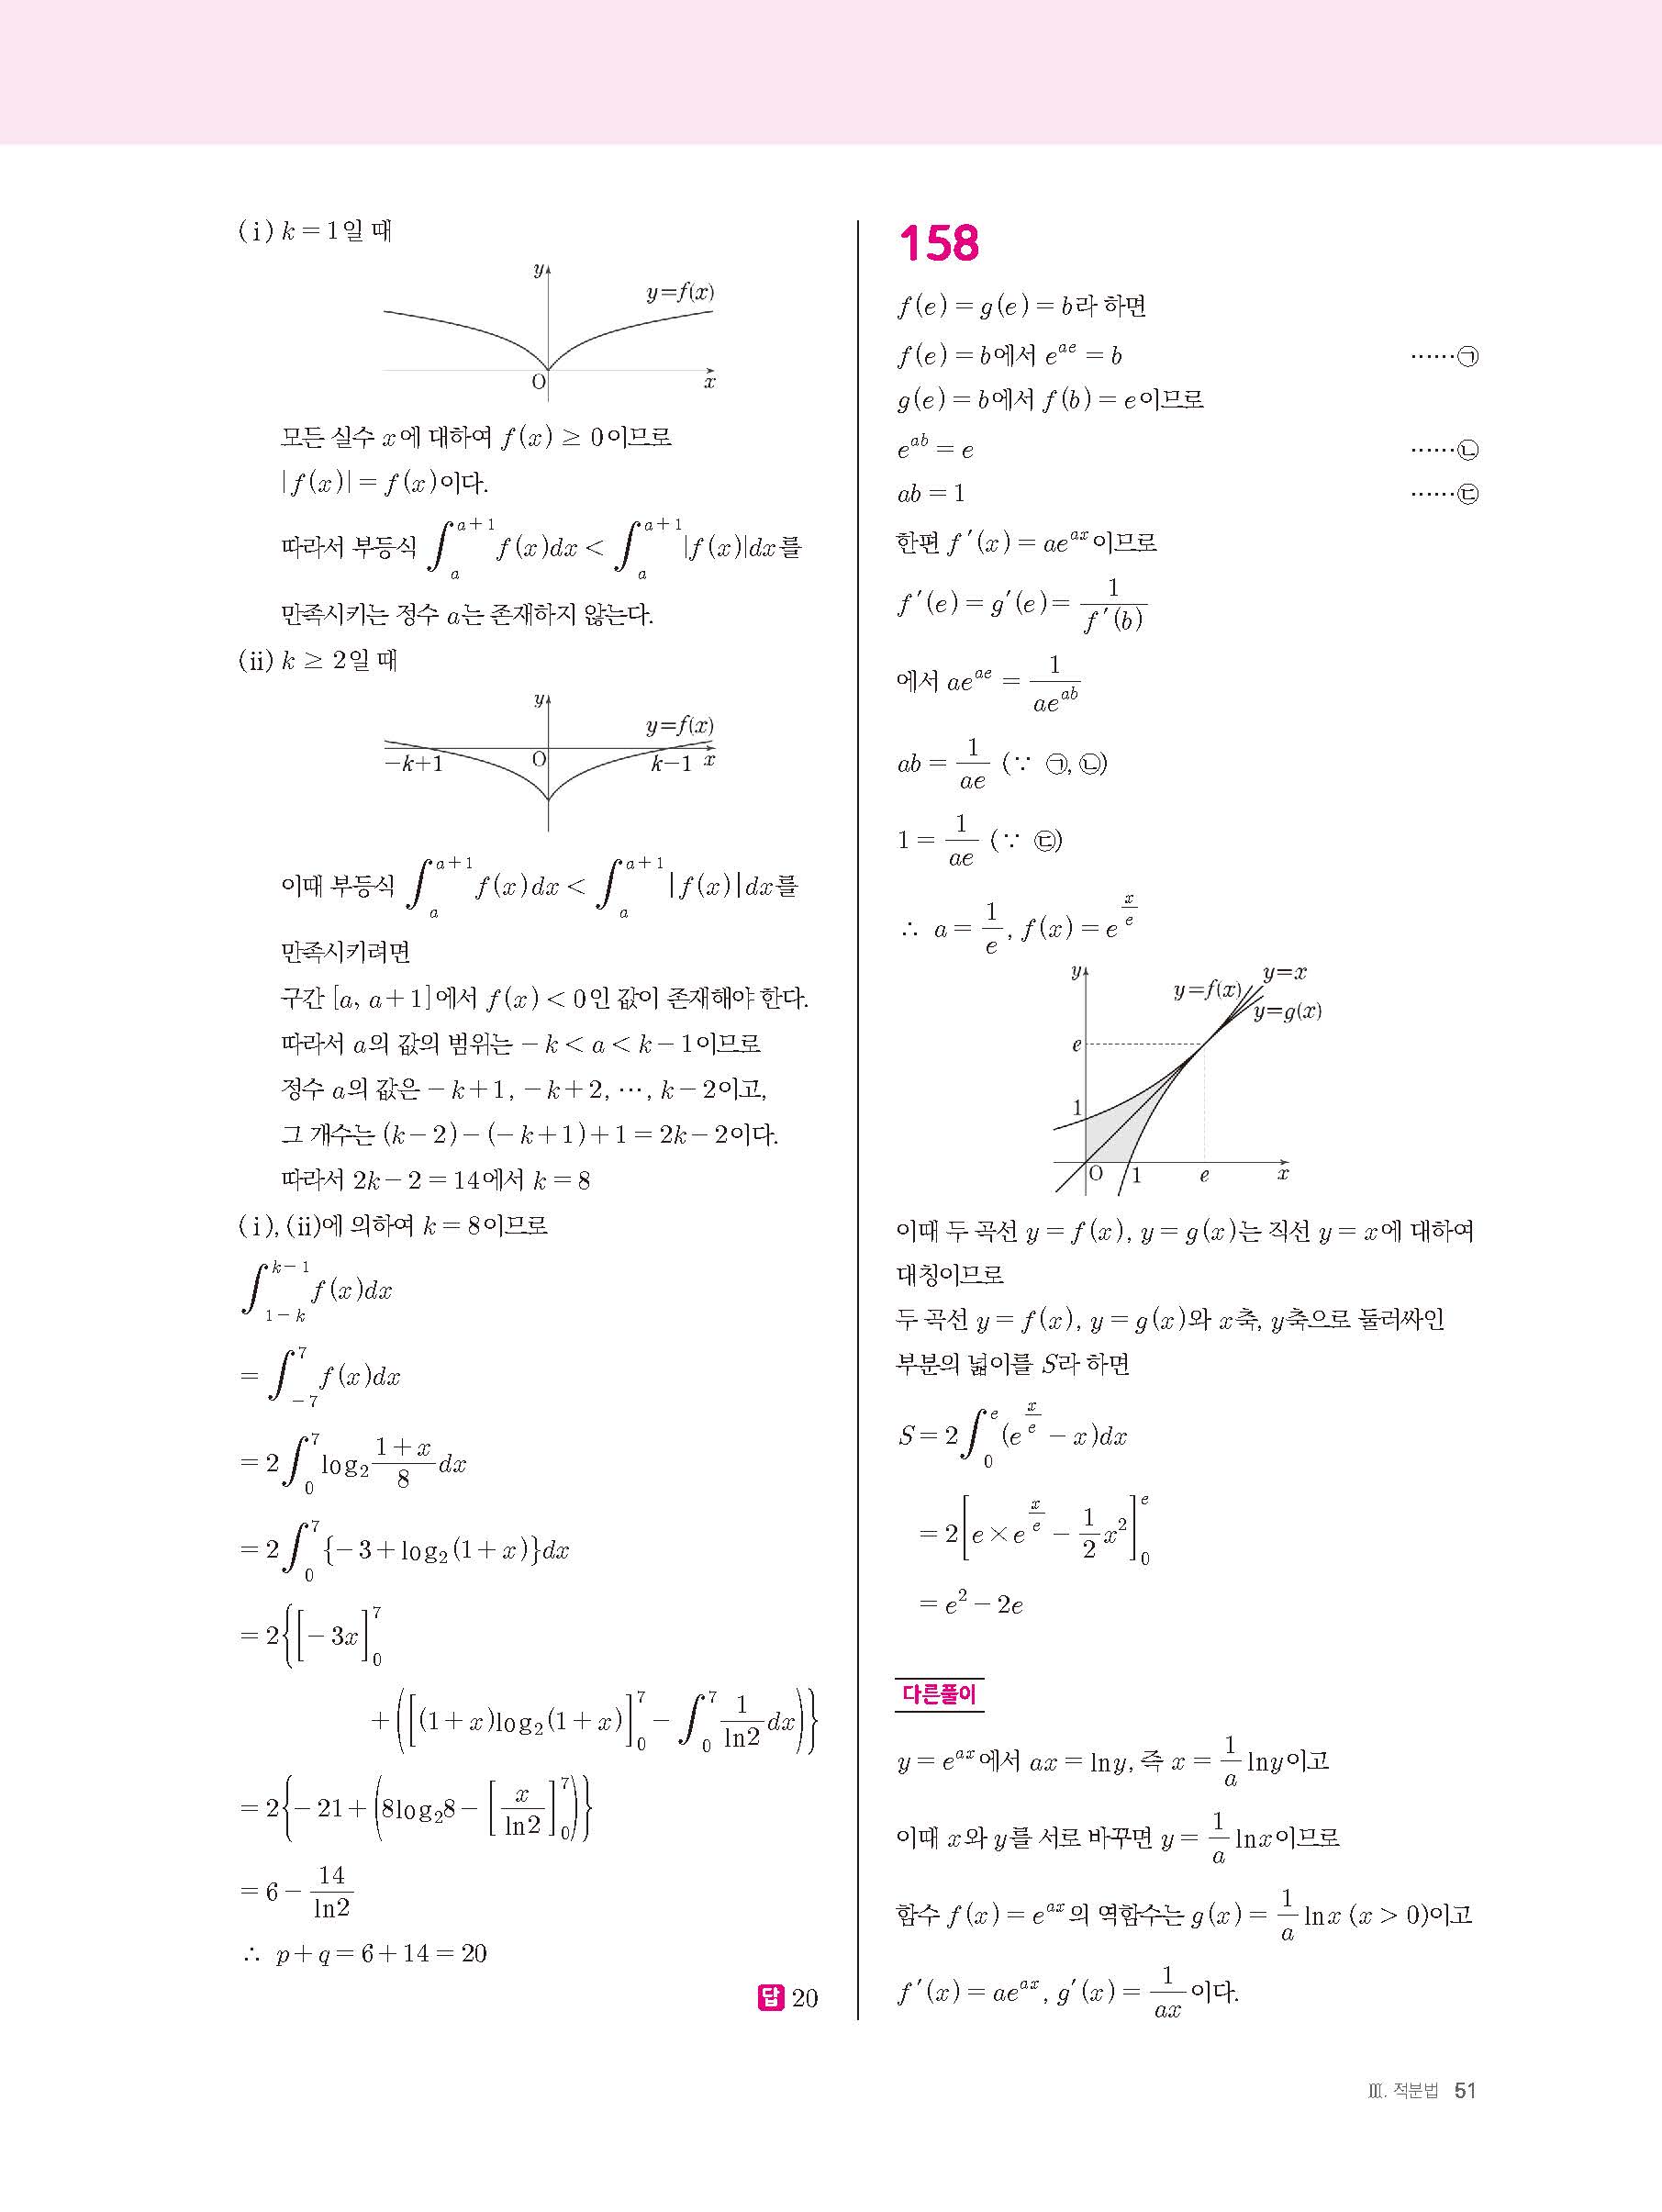 (ⅰ) k = 1일 때
y
y=f(x)
O
x
모든 실수 x에 대하여 f(x) ≥ 0이므로
|f(x)| = f(x)이다.
따라서 부등식 ∫_a^{a+1} f(x)dx < ∫_a^{a+1} |f(x)|dx를
만족시키는 정수 a는 존재하지 않는다.
(ⅱ) k ≥ 2일 때
y
y=f(x)
−k+1
O
k−1
x
이때 부등식 ∫_a^{a+1} f(x)dx < ∫_a^{a+1} |f(x)|dx를
만족시키려면
구간 [a, a+1]에서 f(x) < 0인 값이 존재해야 한다.
따라서 a의 값의 범위는 −k < a < k−1이므로
정수 a의 값은 −k+1, −k+2, ⋯, k−2이고,
그 개수는 (k−2)−(−k+1)+1 = 2k−2이다.
따라서 2k−2 = 14에서 k = 8
(ⅰ), (ⅱ)에 의하여 k = 8이므로
∫_{1−k}^{k−1} f(x)dx
= ∫_{−7}^{7} f(x)dx
= 2∫_0^7 log₂ (1+x)/8 dx
= 2∫_0^7 {−3+log₂(1+x)}dx
= 2{[−3x]_0^7
+([(1+x)log₂(1+x)]_0^7 − ∫_0^7 1/ln2 dx)}
= 2{−21+(8log₂8−[x/ln2]_0^7)}
= 6 − 14/ln2
∴ p+q = 6+14 = 20
답 20
158
f(e) = g(e) = b라 하면
f(e) = b에서 e^{ae} = b ……㉠
g(e) = b에서 f(b) = e이므로
e^{ab} = e ……㉡
ab = 1 ……㉢
한편 f′(x) = ae^{ax}이므로
f′(e) = g′(e) = 1/f′(b)
에서 ae^{ae} = 1/ae^{ab}
ab = 1/ae (∵ ㉠, ㉡)
1 = 1/ae (∵ ㉢)
∴ a = 1/e, f(x) = e^{x/e}
y
y=x
y=f(x)
y=g(x)
e
1
O
1
e
x
이때 두 곡선 y = f(x), y = g(x)는 직선 y = x에 대하여
대칭이므로
두 곡선 y = f(x), y = g(x)와 x축, y축으로 둘러싸인
부분의 넓이를 S라 하면
S = 2∫_0^e (e^{x/e} − x)dx
= 2[e×e^{x/e} − 1/2 x²]_0^e
= e² − 2e
다른풀이
y = e^{ax}에서 ax = lny, 즉 x = 1/a lny이고
이때 x와 y를 서로 바꾸면 y = 1/a lnx이므로
함수 f(x) = e^{ax}의 역함수는 g(x) = 1/a lnx (x > 0)이고
f′(x) = ae^{ax}, g′(x) = 1/ax이다.
Ⅲ. 적분법 51